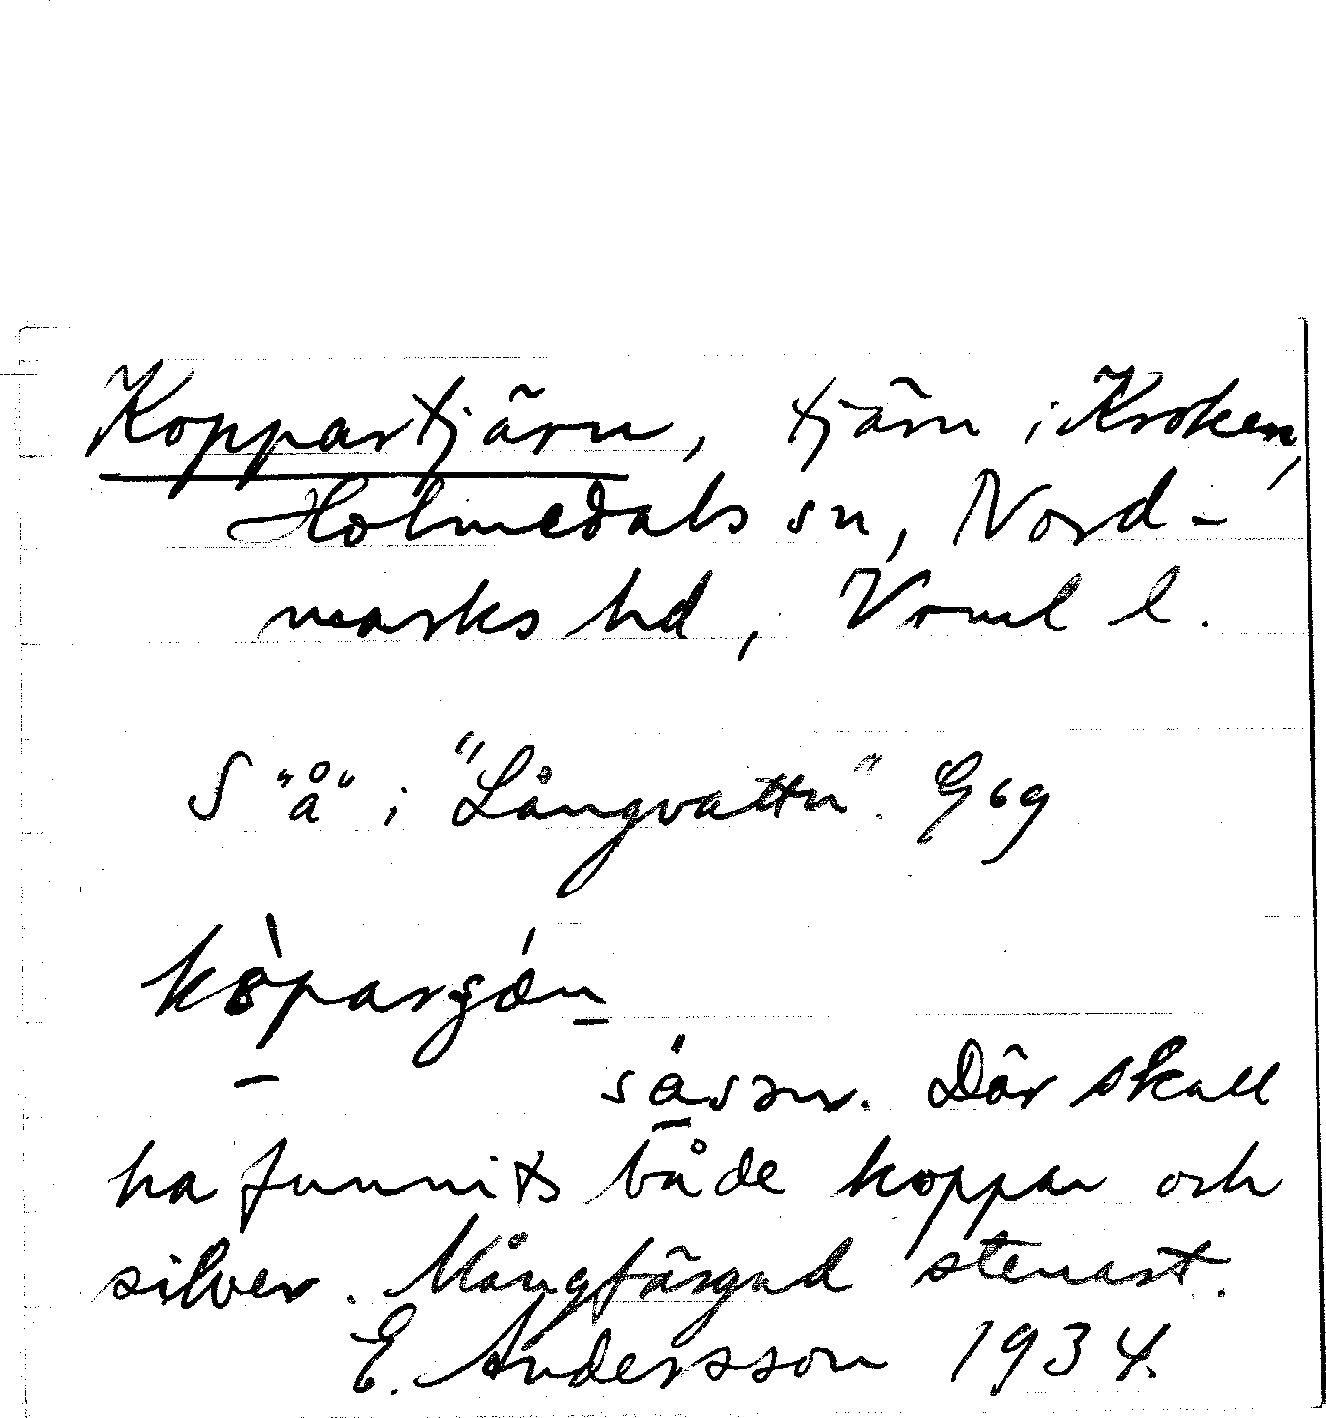 Koppartjärn, tjärn i Kroken,
Holmedals sn, Nord-
marks hd, Vrml l.
S "å" i "Långvattn". G69
såsər. Där skall
ha funnits både koppar och
silver. Mångfärgad stenart.
E. Andersson 1934.